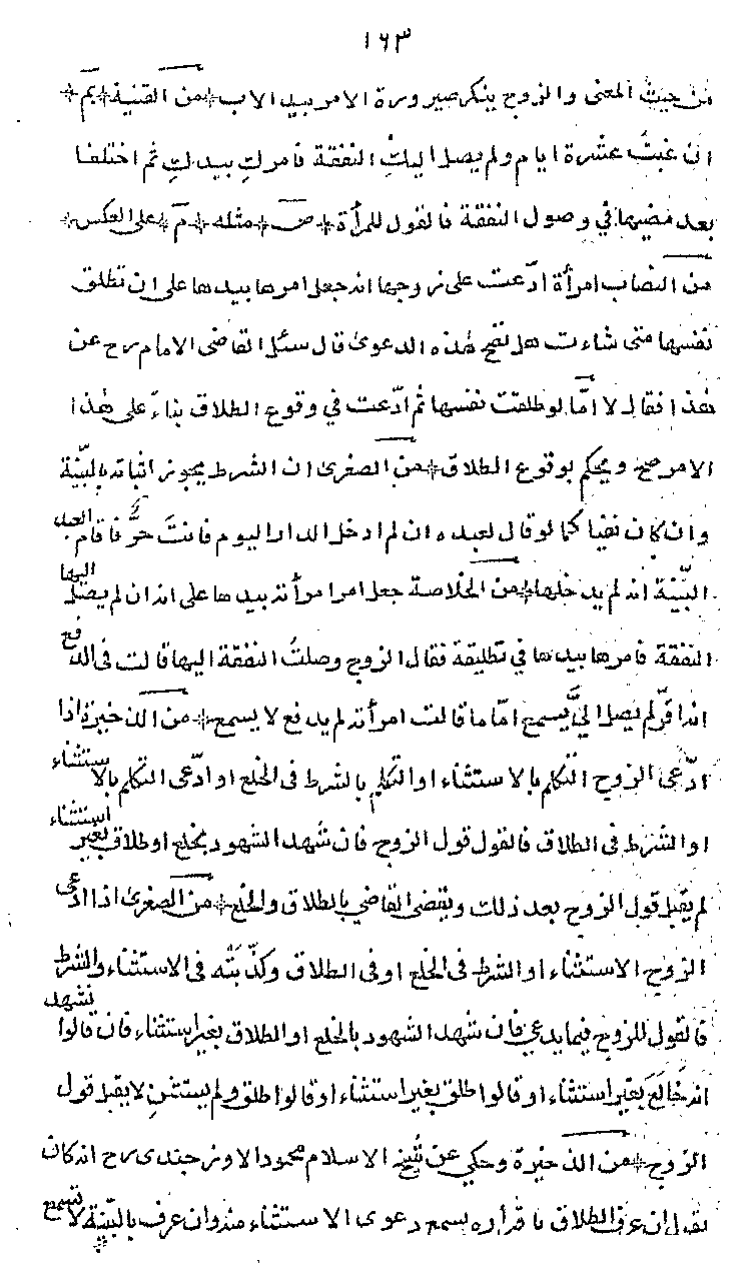 ١٦٣
من حيث المعنى والزوج ينكر صيرورة الامر بيد الاب * من القنية * بم *
ان غبتُ عشرة ايام ولم يصل اليكِ النفقة فامركِ بيدكِ ثم اختلفا
بعد مضيها في وصول النفقة فالقول للمرأة * ص * مثله * م * على العكس *
من النصاب امرأة ادّعت على زوجها انه جعل امرها بيدها على ان تطلق
نفسها متى شاءت هل تصح هذه الدعوى قال سئل القاضى الامام رح عن
هذا فقال لا امّا لو طلقت نفسها ثم ادّعت في وقوع الطلاق بناءً على هذا
الامر صح ويحكم بوقوع الطلاق * من الصغرى ان الشرط يجوز اثباته بالبيّنة
وان كان نفيا كما لو قال لعبده ان لم ادخل الدار اليوم فانتَ حرٌّ فاقام العبد
البيّنة انه لم يدخلها * من الخلاصة جعل امر امرأته بيدها على انه ان لم يصل اليها
النفقة فامرها بيدها في تطليقة فقال الزوج وصلتُ النفقة اليها قالت فى الدفع
انه اقرّ لم يصل اليَّ يسمع امّا ما قالت امرأته لم يدفع لا يسمع * من الذخيرة اذا
ادّعى الزوج التكلم بالاستثناء او التكلم بالشرط فى الخلع او ادّعى التكلم بالاستثناء
او الشرط فى الطلاق فالقول قول الزوج فان شهد الشهود بخلع او طلاق بغير استثناء
لم يقبل قول الزوج بعد ذلك ويقضى القاضي بالطلاق والخلع * من الصغرى اذا ادّعى
الزوج الاستثناء او الشرط فى الخلع او فى الطلاق وكذّبتْه فى الاستثناء والشرط
فالقول للزوج فيما يدعي فان شهد الشهود بالخلع او الطلاق بغير استثناء فان قالوا نشهد
انه خالَعَ بغير استثناء او قالوا طلق بغير استثناء او قالوا طلق ولم يستثنِ لا يقبل قول
الزوج * من الذخيرة وحكي عن شيخ الاسلام محمود الاوزجندى رح انه كان
يقول ان عرف الطلاق باقراره يسمع دعوى الاستثناء منه وان عرف بالبيّنة لا تسمع